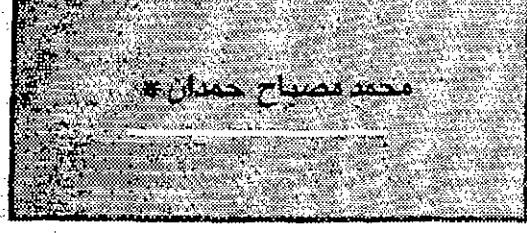 محمد مصباح حمدان *